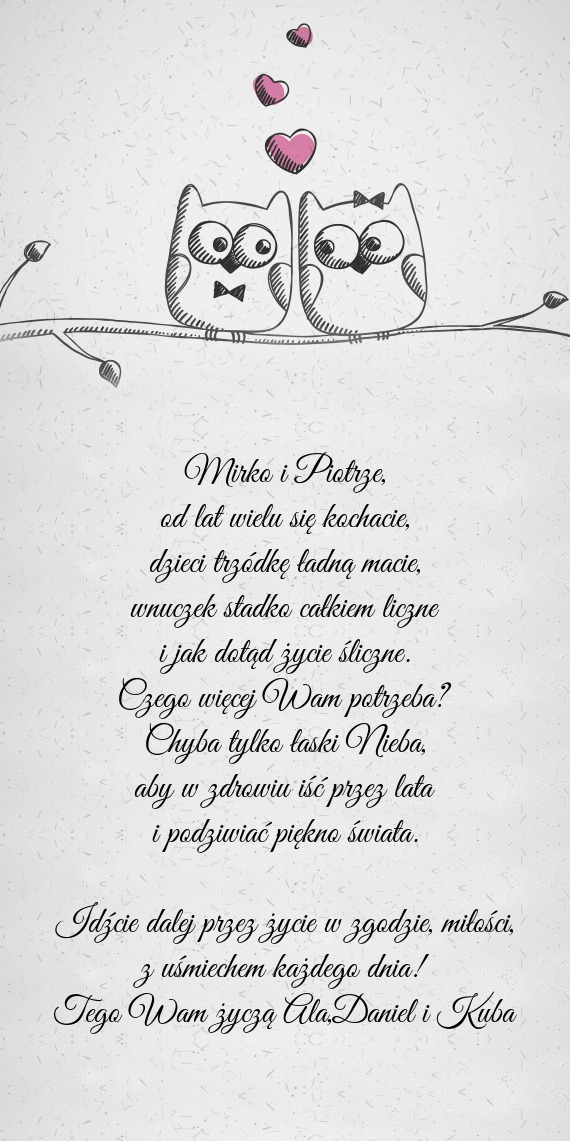 Mirko i Piotrze,
od lat wielu się kochacie,
dzieci trzódkę ładną macie,
wnuczek stadko całkiem liczne
i jak dotąd życie śliczne.
Czego więcej Wam potrzeba?
Chyba tylko łaski Nieba,
aby w zdrowiu iść przez lata
i podziwiać piękno świata.
Idźcie dalej przez życie w zgodzie, miłości,
z uśmiechem każdego dnia!
Tego Wam życzą Ala,Daniel i Kuba